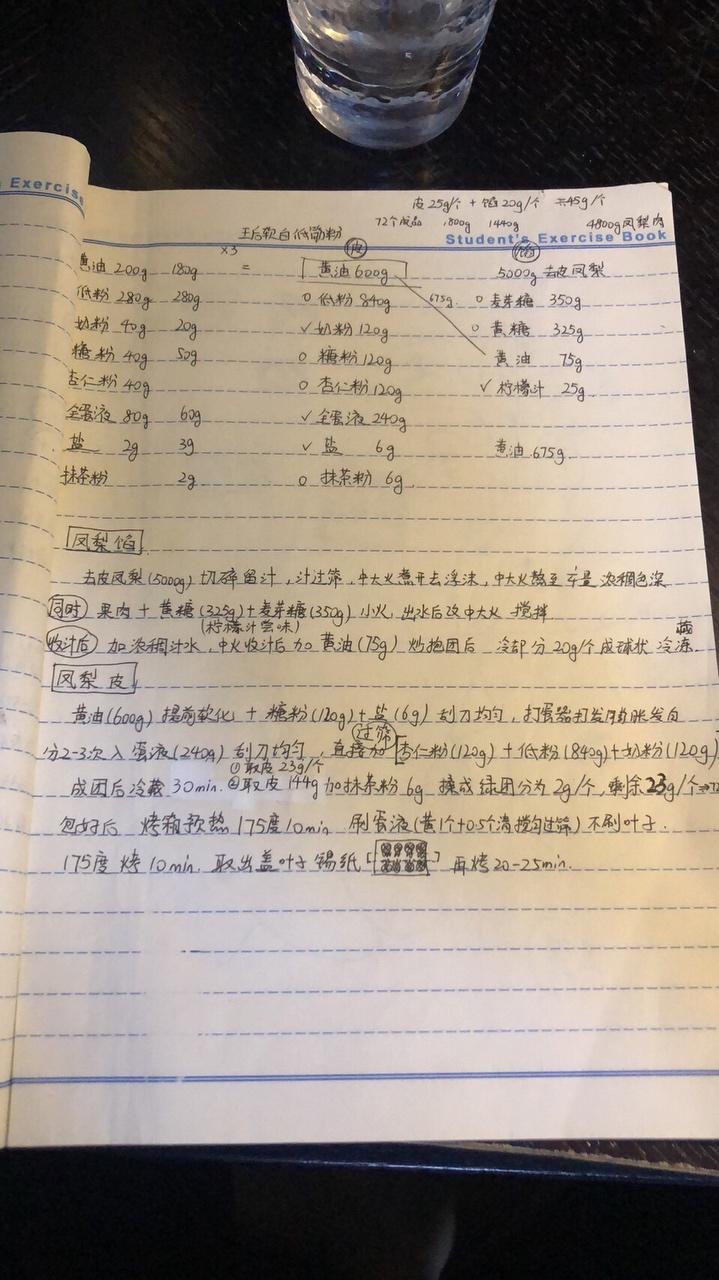 Exercise
皮25g/个 + 馅20g/个 =45g/个
72个成品 1800g 1440g 4800g凤梨肉
王后软白低筋粉 皮 馅
Student's Exercise Book
×3
黄油 200g 180g = 黄油 600g 5000g 去皮凤梨
低粉 280g 280g o 低粉 840g 675g o 麦芽糖 350g
奶粉 40g 20g ✓ 奶粉 120g o 黄糖 325g
糖粉 40g 50g o 糖粉 120g 黄油 75g
杏仁粉 40g o 杏仁粉 120g ✓ 柠檬汁 25g
全蛋液 80g 60g ✓ 全蛋液 240g
盐 2g 3g ✓ 盐 6g 黄油 675g
抹茶粉 2g o 抹茶粉 6g
凤梨馅
去皮凤梨(5000g) 切碎留汁,汁过筛,中大火煮开去浮沫,中大火熬至 浓稠色深
同时 果肉 + 黄糖(325g)+麦芽糖(350g) 小火,出水后改中大火 搅拌
(柠檬汁尝味)
收汁后 加浓稠汁水,中火收汁后加黄油(75g) 炒抱团后 冷却分20g/个成球状 冷冻
凤梨皮
黄油(600g) 提前软化 + 糖粉(120g)+盐(6g) 刮刀均匀,打蛋器打发膨胀发白
过筛
分2-3次入蛋液(240g) 刮刀均匀,直接加[杏仁粉(120g)+低粉(840g)+奶粉(120g)]
①取皮23g/个
成团后冷藏30min. ②取皮144g加抹茶粉6g 揉成绿团分为2g/个,剩余23g/个
包好后 烤箱预热175度10min 刷蛋液(黄1个+0.5个清搅匀过筛)不刷叶子.
175度烤10min, 取出盖叶子锡纸 [ ] 再烤20-25min.